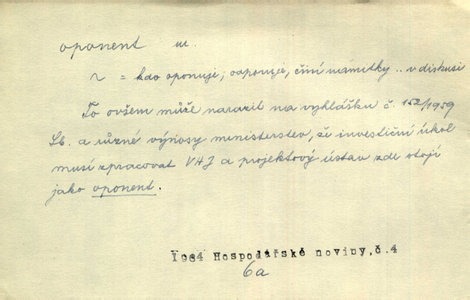 oponent m.
~ = kdo oponuje, odporuje, činí námitky .. v diskusi
To ovšem může narazit na vyhlášku č. 152/1959
Sb. a různé výnosy ministerstev, že investiční úkol
musí zpracovat VHJ a projektový ústav zde stojí
jako oponent.
1964 Hospodářské noviny, č. 4
6a